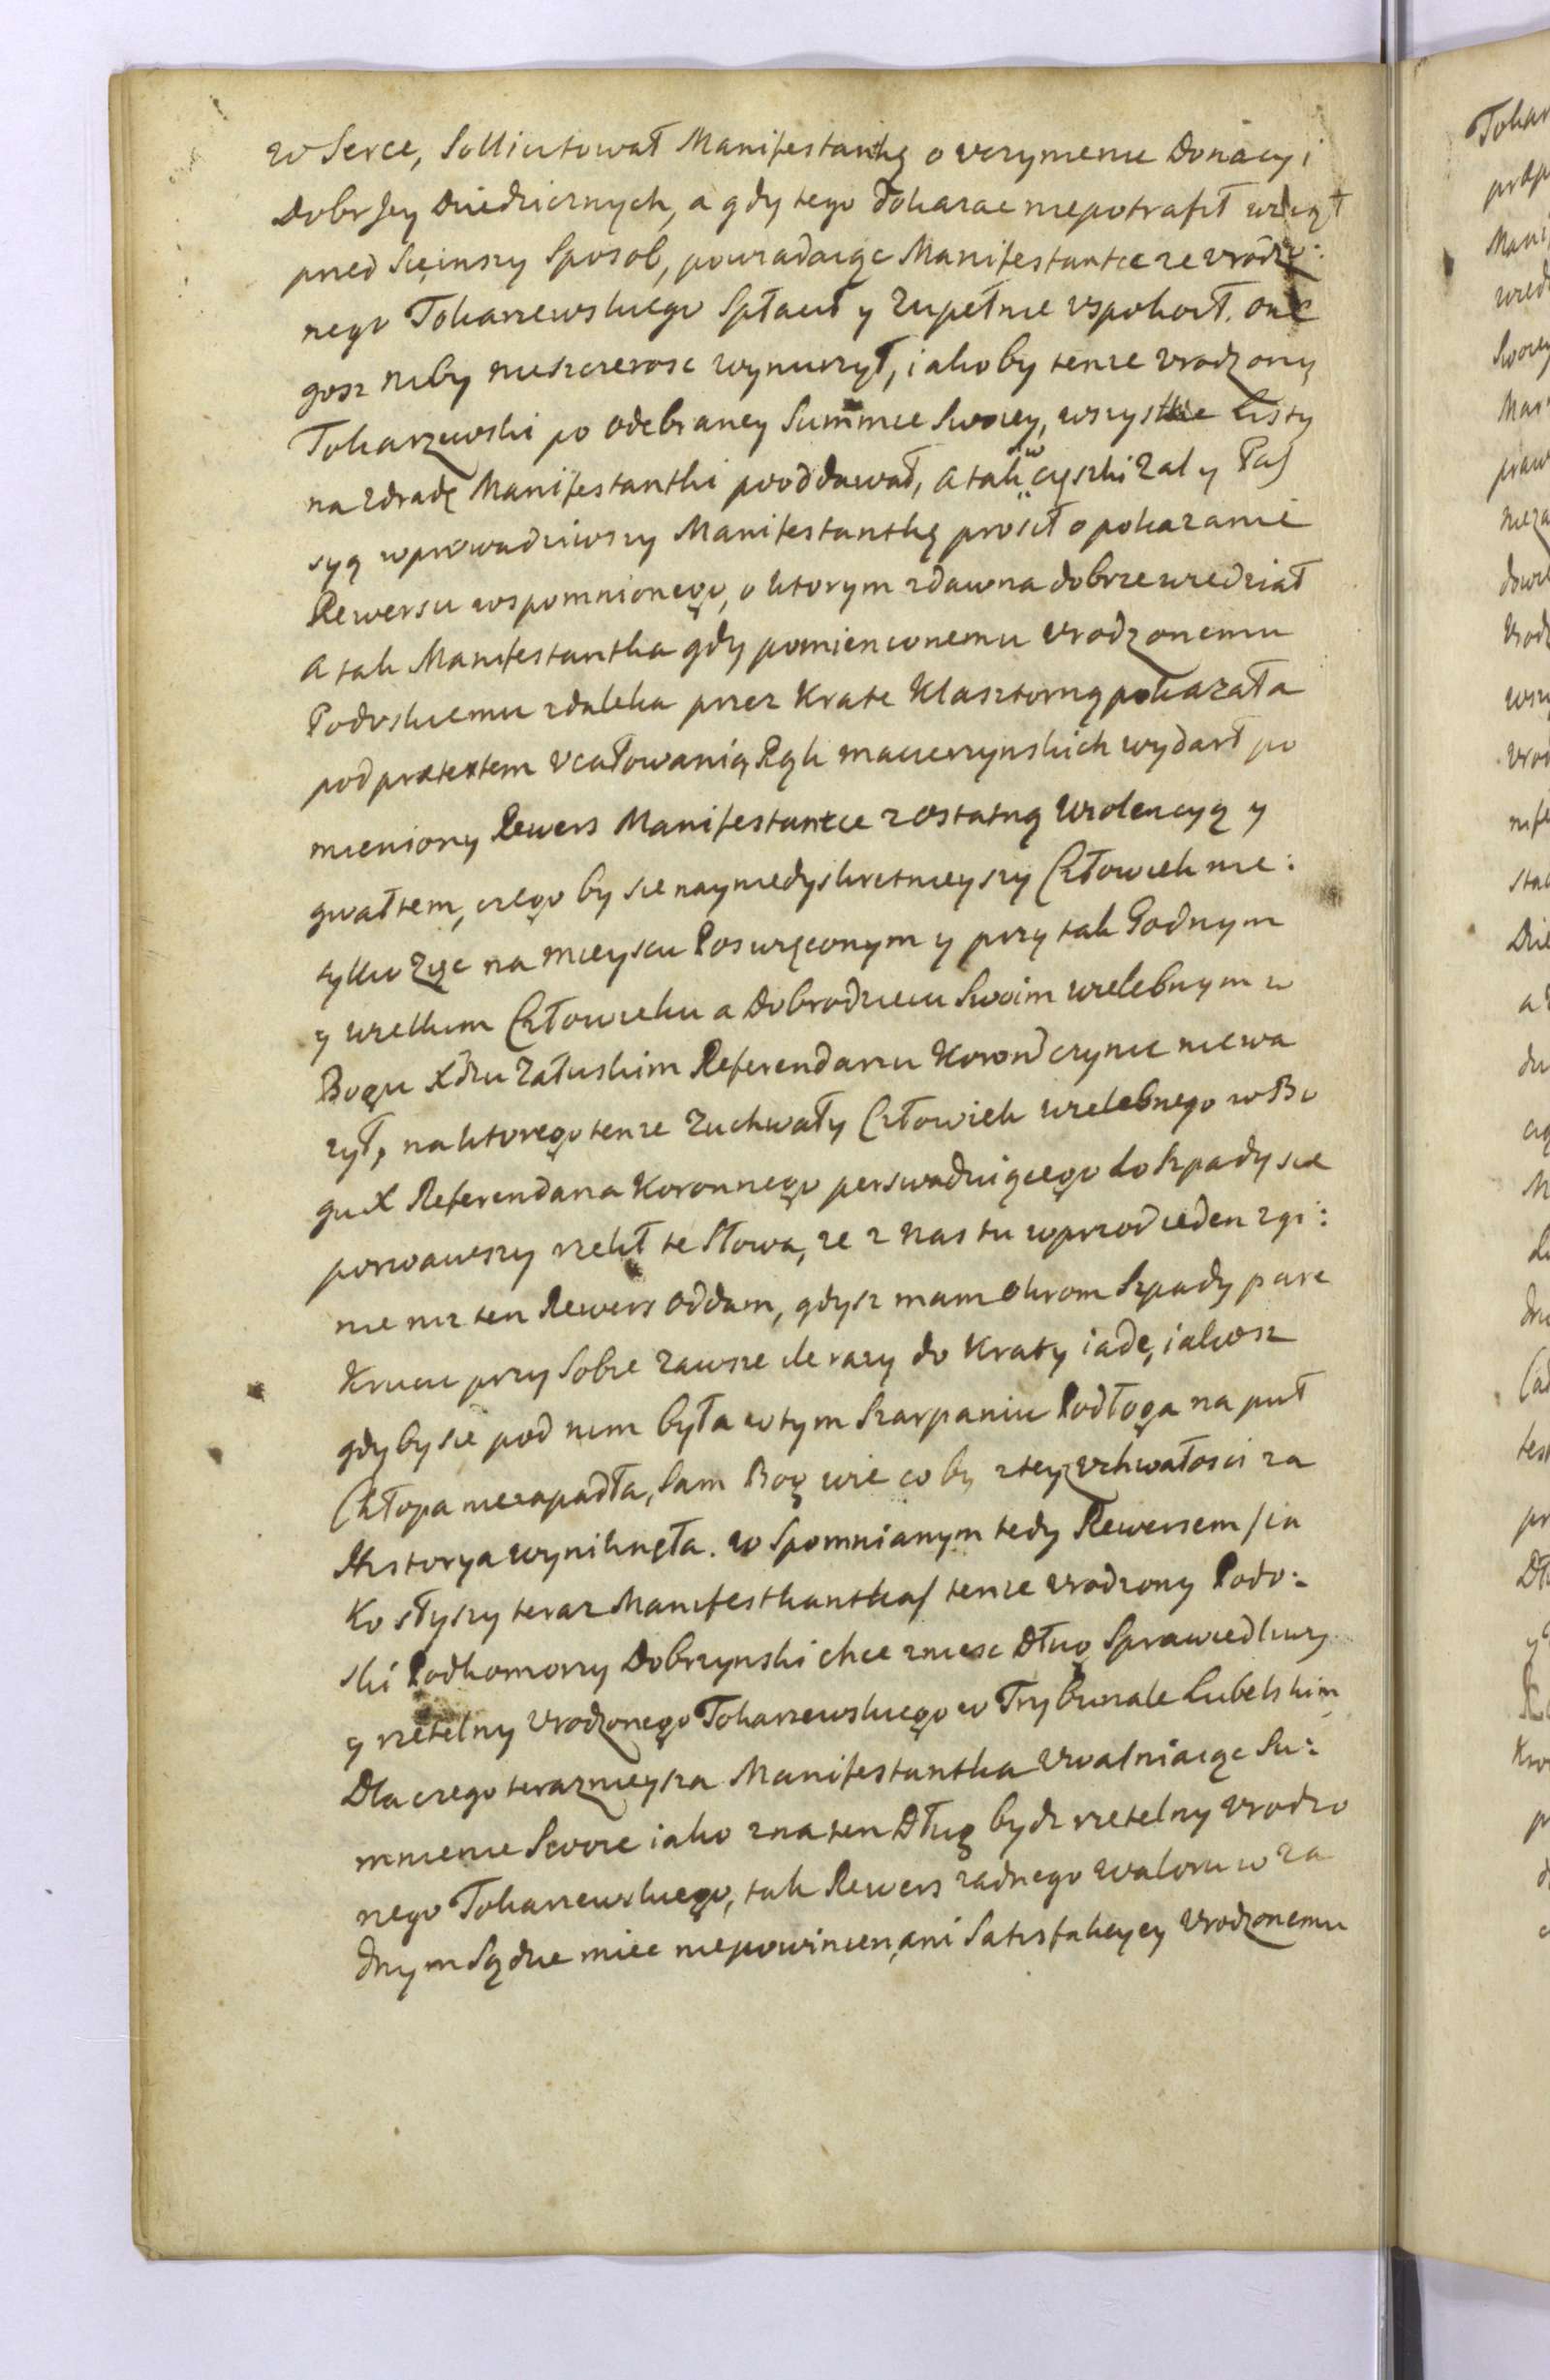 w Serce, Sollicitował Manifestantkę o uczynienie Donacyi
Dobr Jey Dziedzicznych, a gdy tego dokazac niepotrafił wziął
przed Sięinszy Sposob, powiadaiąc Manifestantce ze Urodzo:
nego Tokarzewskiego Spłacił y zupełnie uspokoił. one
gosz niby nieszczerosc wynurzył, iakoby tenze Urodzony
Tokarzewski po odebraney Summie Swoiey, wszystkie Listy
na zdradę Manifestantki pooddawał, a tak w cyszki zal y Pas
syą wprowadziwszy Manifestantkę prosił o pokazanie
Rewersu wspomnionego, o ktorym zdawna dobrze wiedział
a tak Manifestantka gdy pomienionemu Urodzonemu
Podoskiemu zdaleka przez Krate Klasztorną pokazała
pod prætextem Ucałowanią Rąk macierzynskich wydarł po
mieniony Rewers Manifestantce z ostatną Wiolencyą y
gwałtem, czego by sie naymedyskretnieyszy Człowiek nie:
tylko Zyc na mieyscu Poswięconym y przy tak Godnym
y wielkim Człowieku a Dobrodzieiu Swoim wielebnym w
Bogu Xdzu Załuskim Referendarzu Koron czynic niewa
zył, naktorego tenze Zuchwały Człowiek wielebnego w Bo
gu X Referendarza Koronnego perswaduiącego do Szpady sie
porwawszy rzekł te Słowa, ze z nas tu wprzod ieden zgi:
nie niz ten Rewers oddam, gdysz mam okrom Szpady pare
Krucic przy Sobie zawsze ile razy do Kraty iade, iakosz
gdyby sie pod nim była w tym Szarpaniu Podłoga na puł
Chłopa niezapadła, Sam Bog wie co by z tey zuchwałosci za
Historya wyniknęła. w Spomnianym tedy Rewersem /ia
ko słyszy teraz Manifesthantka/ tenze Urodzony Podo:
ski Podkomorzy Dobrzynski chce zniesc Dług Sprawiedliwy
y rzetelny Urodzonego Tokarzewskiego w Trybunale Lubelskim
Dla czego terazneysza Manifestantka Uwalniaiąc Su:
mnienie Swoie iako zna ten Dług bydz rzetelny Urodzo
nego Tokarzewskiego, tak Rewers zadnego waloru w za
dnym Sądzie miec niepowinien, ani Satisfakcyey Urodzonemu